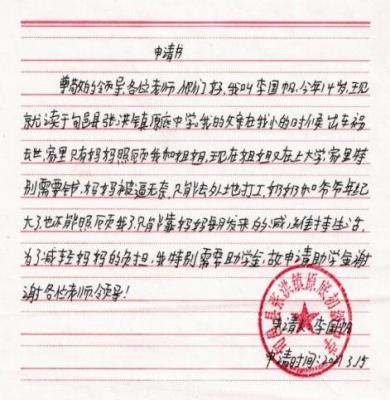 申请书
尊敬的领导各位老师你们好,我叫李国帆,今年14岁,现
就读于旬邑县张洪镇原底中学。我的父亲在我小的时候出车祸
去世,家里只有妈妈照顾我和姐姐,现在姐姐又在上大学,家里特
别需要钱,妈妈被逼无奈,只能去外地打工,奶奶和爷爷年纪
大了,也不能照顾我了,只能靠妈妈每月发来的工资维持生活,
为了减轻妈妈的负担,我特别需要助学金,故申请助学金谢
谢各位老师领导!
申请人:李国帆
申请时间:2021 3.15
旬邑县张洪镇原底初级中学